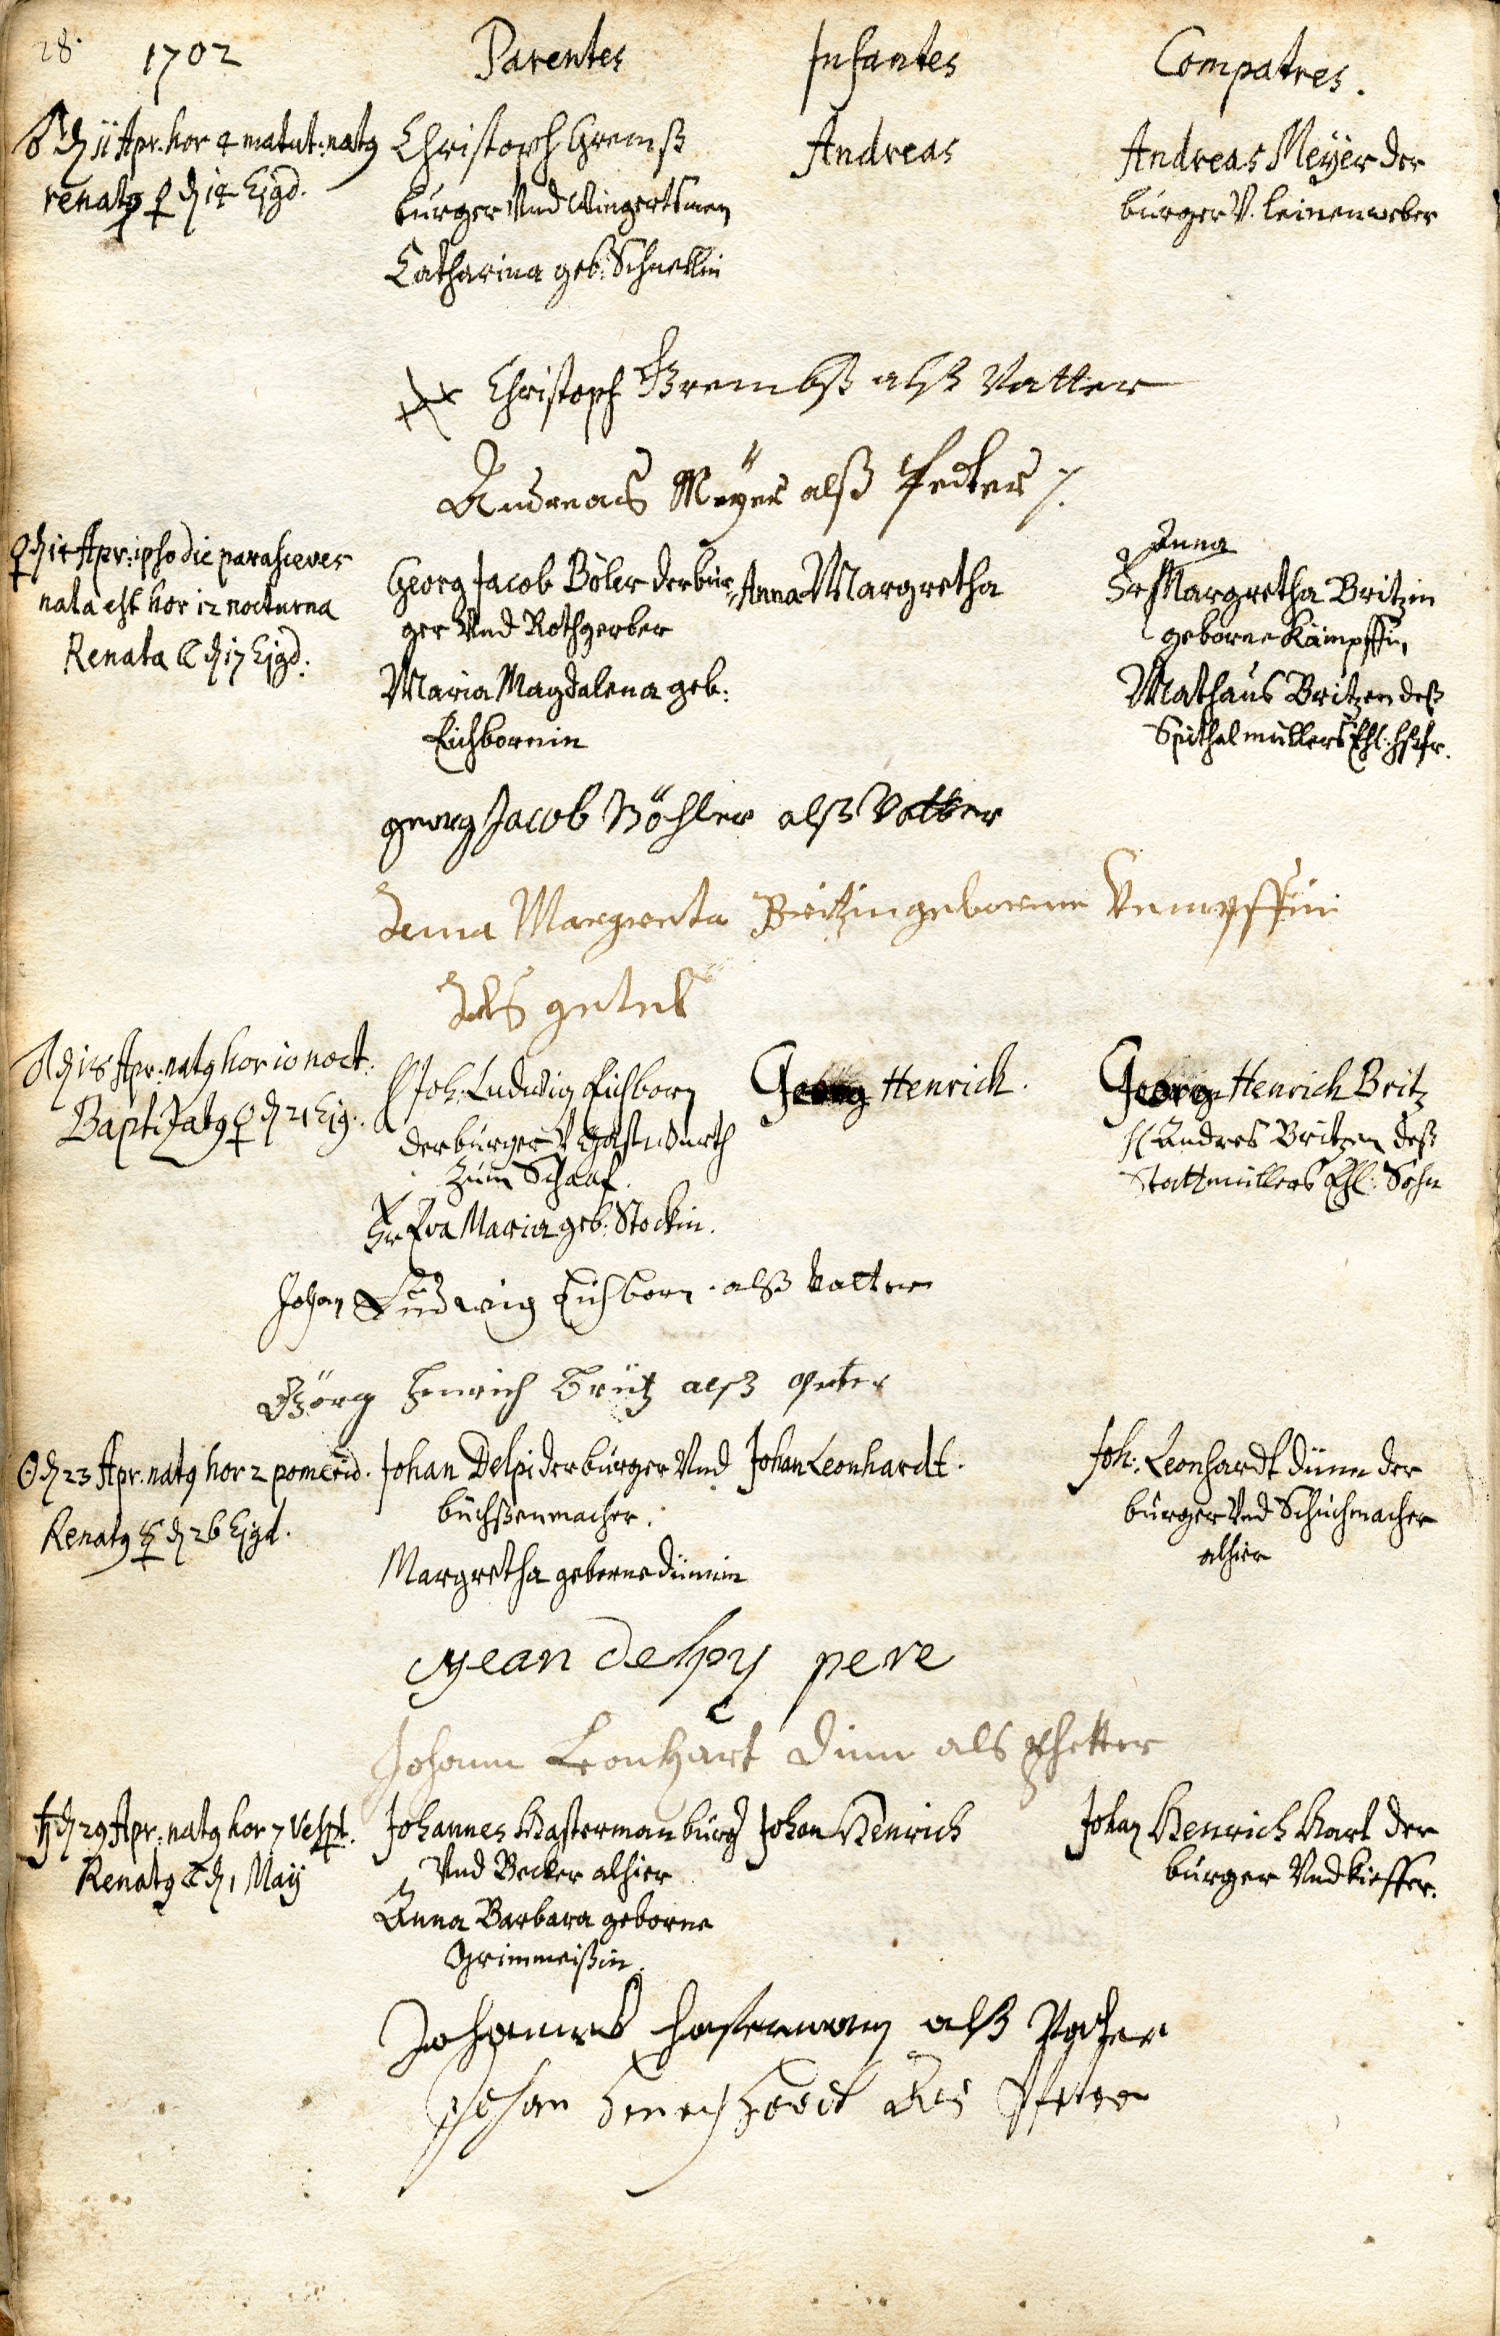 28.
1702 Parentes Infantes Compatres.
♂ d 11 Apr. hor 4 matut: natg
renatg ♀ d 14 Ejgd.
Christoph Gremß
burger Vnd Wingertsman
Catharina geb: Schnellin
Andreas
Andreas Meÿer der
burger V. leinenweber
Christoph Grembß alß Vatter
Andreas Meÿer alß Petter
♀ d 14 Apr: ipso die parasceves
nata est hor 12 nocturna
Renata ☾ d 17 Ejgd:
Georg Jacob Böler der bur„
ger Vnd Rothgerber
Maria Magdalena geb:
Eichbornin
Anna Margretha
Anna
Fr Margretha Britzin
geborne Kämpffin,
Mathäus Britzen deß
Spithalmüllers Ehl: Hßfr.
georg Jacob Böhler alß Vatter
Anna Margreta Britzin geborne Kempffin
als getel
♂ d 18 Apr: natg hor 10 noct:
Baptizatg ♀ d 21 Ejg:
H Joh: Ludwig Eichborn
der burger V Gastwürth
zum Schaaf.
Fr Eva Maria geb: Stockin.
Georg Henrich.
Georg Henrich Britz
H Andres Britzen deß
Stattmüllers Ehl: Sohn
Johan Ludwig Eichborn alß Vatter
Görg Henrich Britz alß Peter
☉ d 23 Apr. natg hor 2 pomerid.
Renatg ☿ d 26 Ejgd.
Johan Delpi der burger Vnd
büchßenmacher.
Margretha geborne dünnin
Johan Leonhardt.
Joh: Leonhardt dünn der
burger Vnd Schuchmacher
alhier
Jean delpy pere
Johann Leonhart Dinn als Phetter
♄ d 29 Apr: natg hor 7 Vesp.
Renatg ☾ d 1 Maij
Johannes Hasterman burg
Vnd Becker alhier
Anna Barbara geborne
Grimmeißin.
Johan Henrich
Johan Henrich Hart der
burger Vnd kieffer.
Johannes Hasterman alß Vatter
Johan Henrich Als Petter